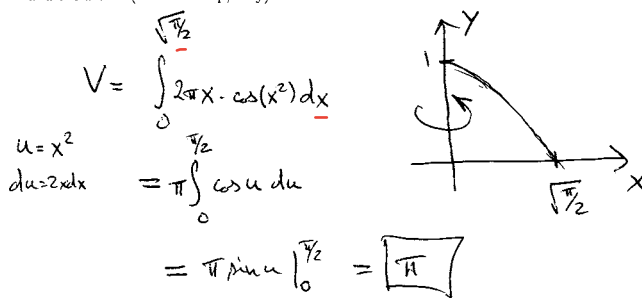 √π/2
V = ∫ 2πx · cos(x²) dx
0
u = x²
du = 2xdx
π/2
= π∫ cos u du
0
= π sin u |₀^π/2 = π
y
1
x
√π/2